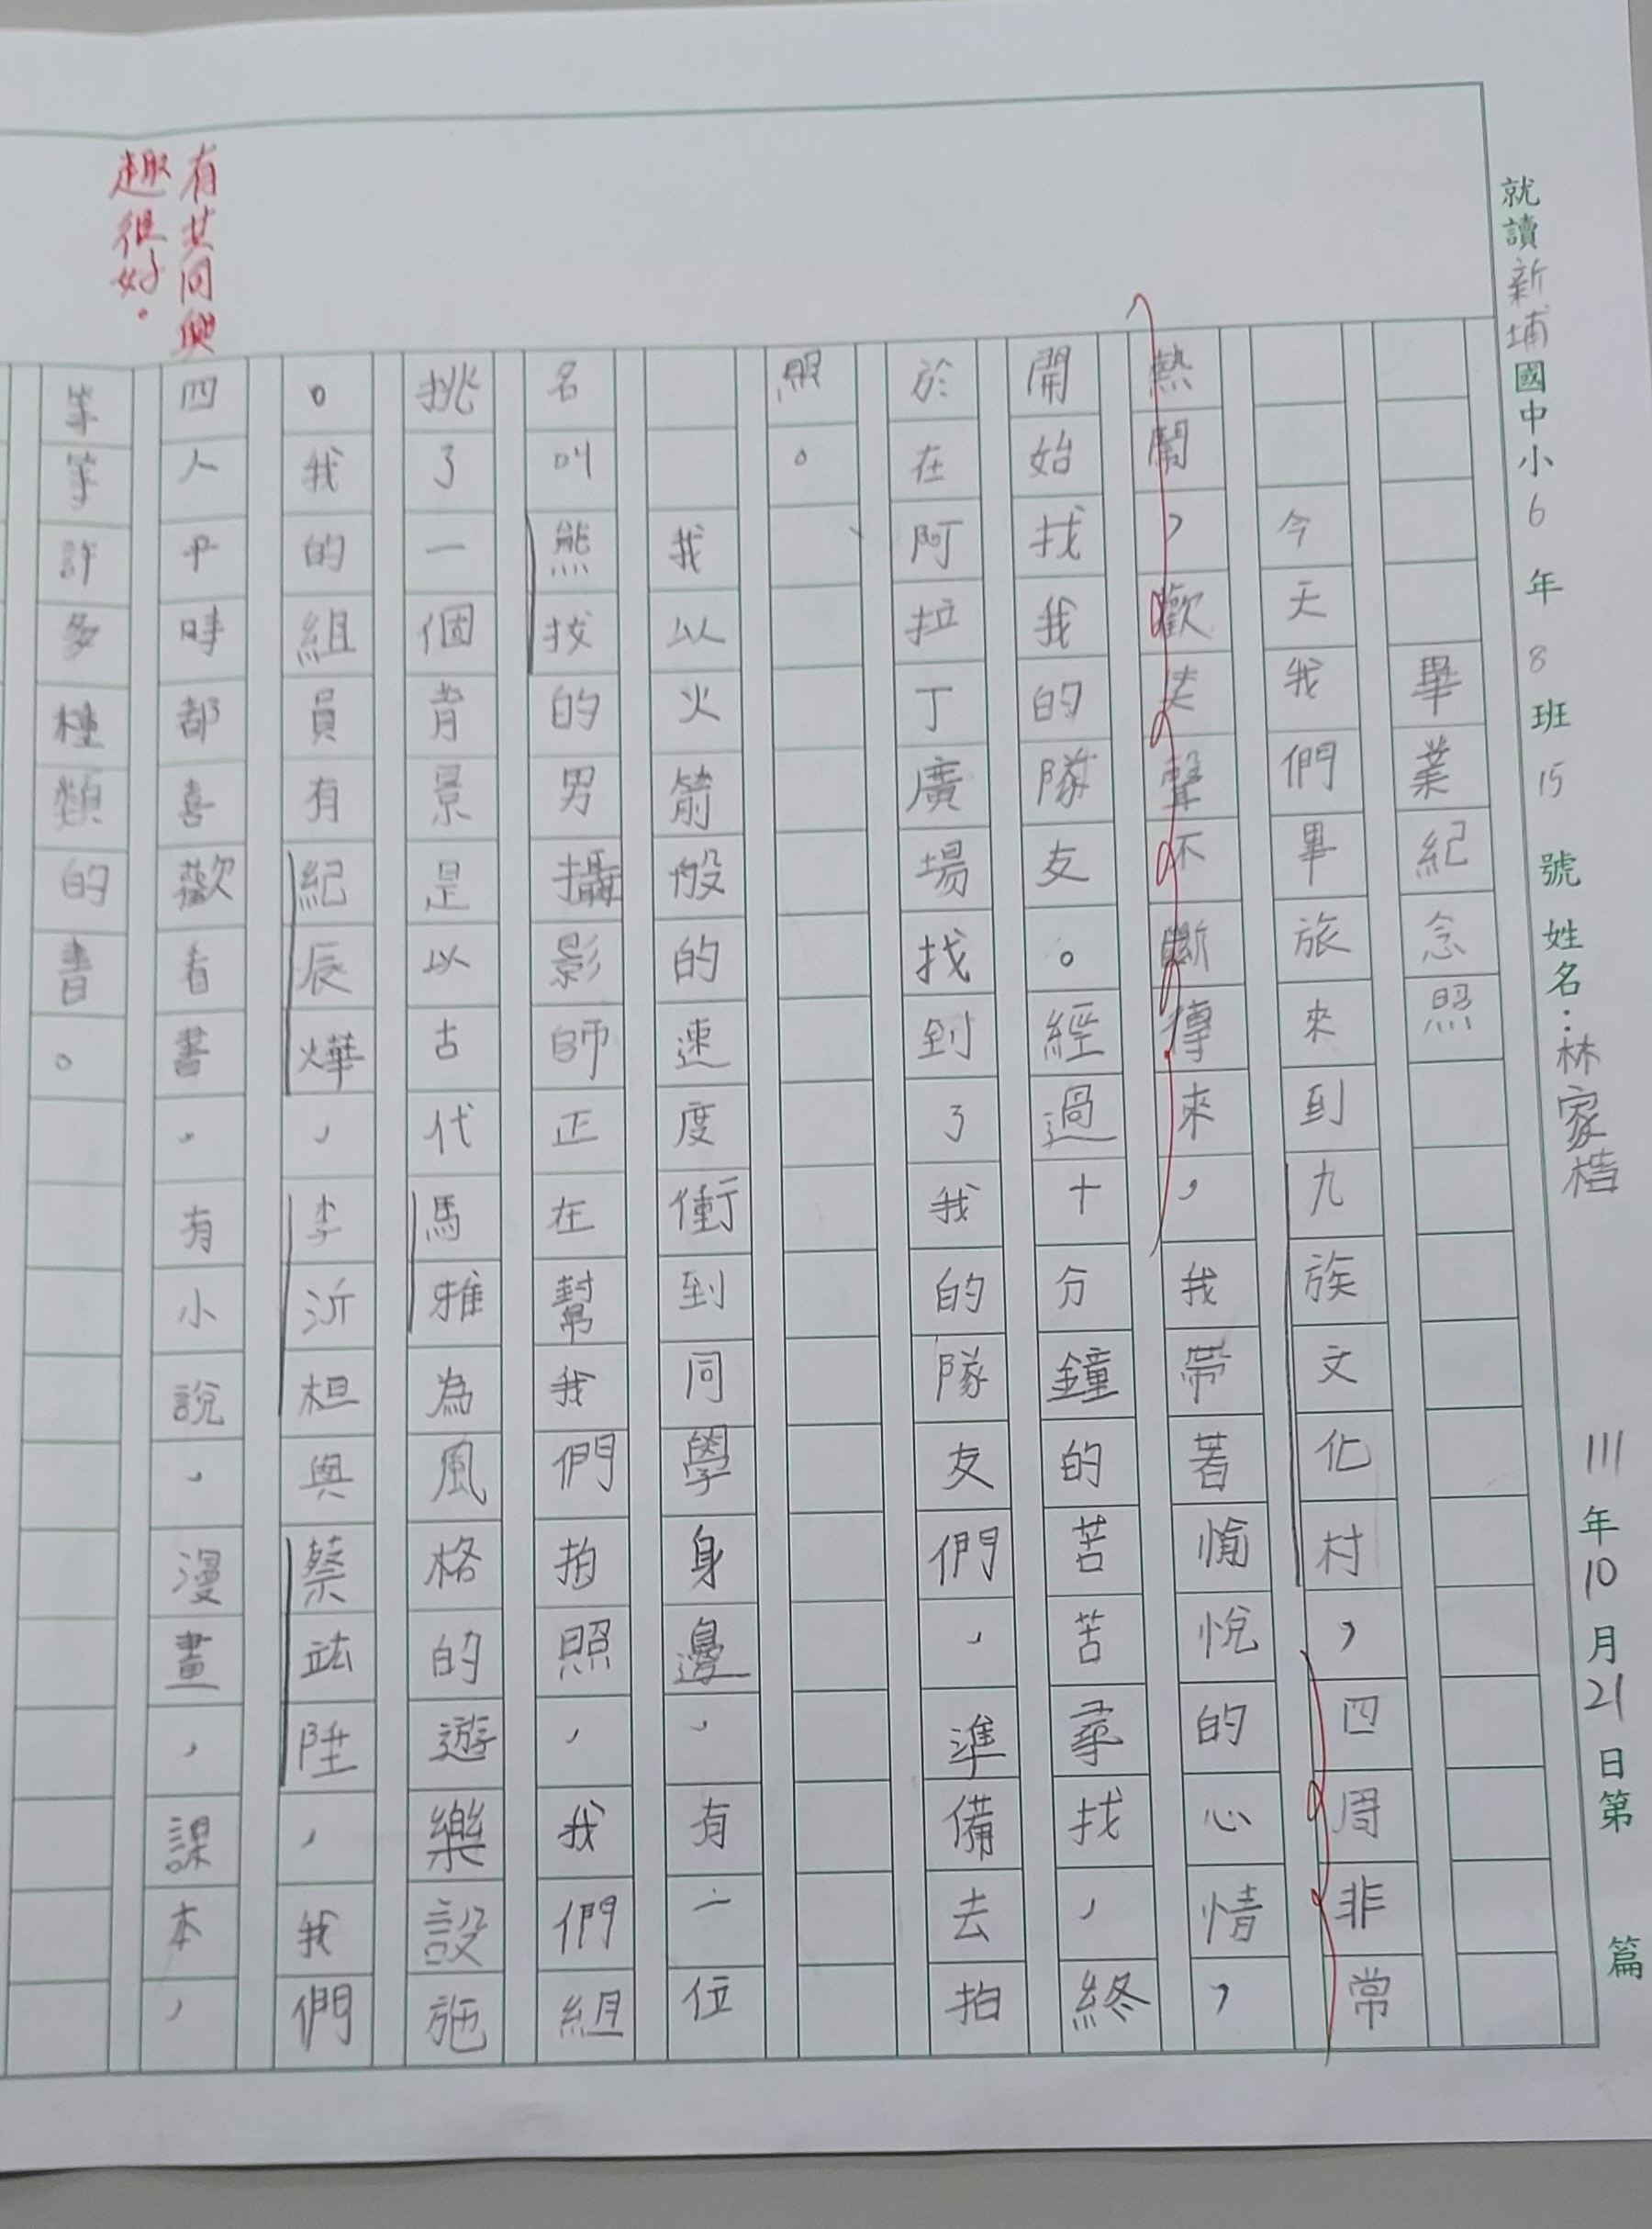 就讀新埔國中小6年8班15號姓名：林家楷 111年10月21日第 篇
畢業紀念照
今天我們畢旅來到九族文化村，四周非常
熱鬧，歡笑聲不斷傳來，我帶著愉悅的心情，
開始找我的隊友。經過十分鐘的苦苦尋找，終
於在阿拉丁廣場找到了我的隊友們，準備去拍
照。
我以火箭般的速度衝到同學身邊，有一位
名叫熊技的男攝影師正在幫我們拍照，我們組
挑了一個背景是以古代馬雅為風格的遊樂設施
。我的組員有紀辰燁，李沂桓與蔡竑陞，我們
四人平時都喜歡看書，有小說，漫畫，課本，
等等許多種類的書。
有共同興
趣很好。